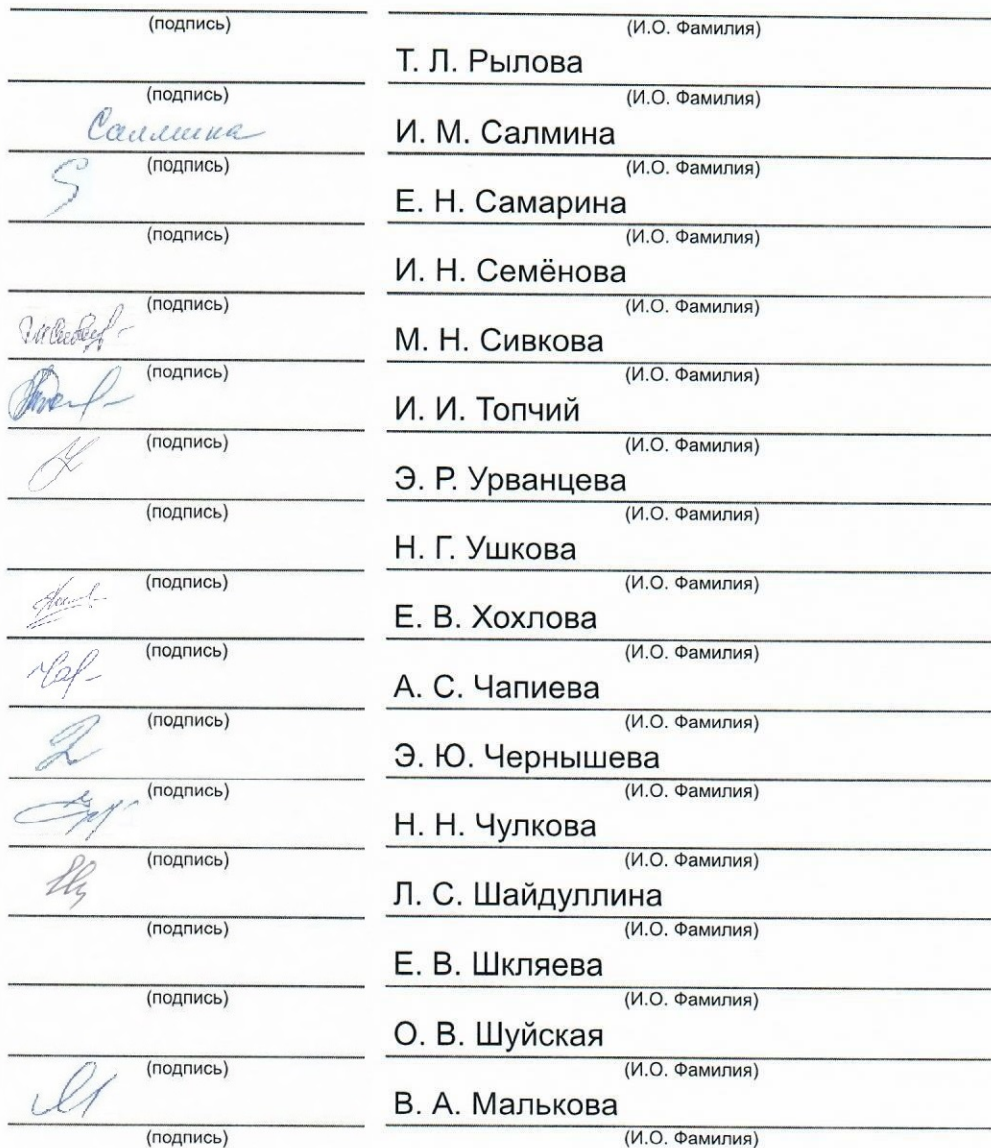 (подпись) (И.О. Фамилия)
Т. Л. Рылова
(подпись) (И.О. Фамилия)
Салмина И. М. Салмина
(подпись) (И.О. Фамилия)
Е. Н. Самарина
(подпись) (И.О. Фамилия)
И. Н. Семёнова
(подпись) (И.О. Фамилия)
М. Н. Сивкова
(подпись) (И.О. Фамилия)
И. И. Топчий
(подпись) (И.О. Фамилия)
Э. Р. Урванцева
(подпись) (И.О. Фамилия)
Н. Г. Ушкова
(подпись) (И.О. Фамилия)
Е. В. Хохлова
(подпись) (И.О. Фамилия)
А. С. Чапиева
(подпись) (И.О. Фамилия)
Э. Ю. Чернышева
(подпись) (И.О. Фамилия)
Н. Н. Чулкова
(подпись) (И.О. Фамилия)
Л. С. Шайдуллина
(подпись) (И.О. Фамилия)
Е. В. Шкляева
(подпись) (И.О. Фамилия)
О. В. Шуйская
(подпись) (И.О. Фамилия)
В. А. Малькова
(подпись) (И.О. Фамилия)